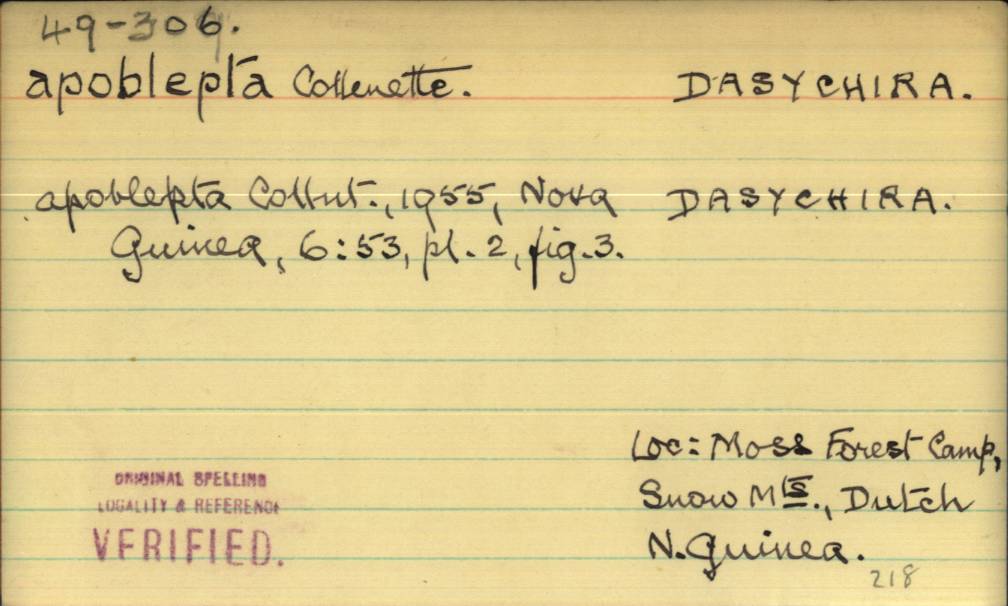 49-306.
apoblepta Collenette. DASYCHIRA.
apoblepta Collnt., 1955, Nova DASYCHIRA.
Guinea, 6:53, pl. 2, fig. 3.
Loc: Moss Forest Camp,
Snow Mts., Dutch
N. Guinea.
218
ORIGINAL SPELLING
LOCALITY & REFERENCE
VERIFIED.